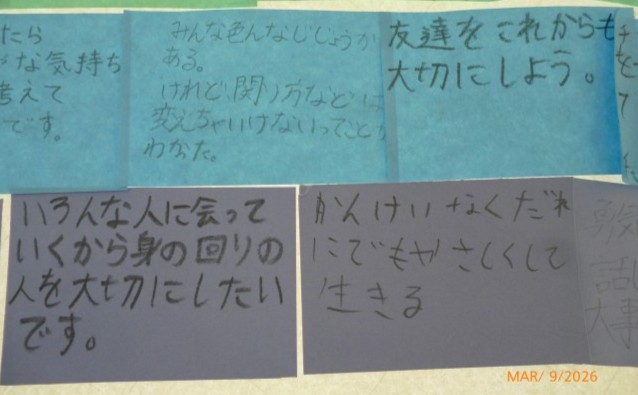 たら
な気持ち
考えて
です。
みんな色んなじじょうが
ある。
けれど、関り方などは
変えちゃいけないってことが
わかった。
友達をこれからも
大切にしよう。
いろんな人に会って
いくから身の回りの
人を大切にしたい
です。
かんけいなくだれ
にでもやさしくして
生きる
話
大事
MAR/ 9/2026